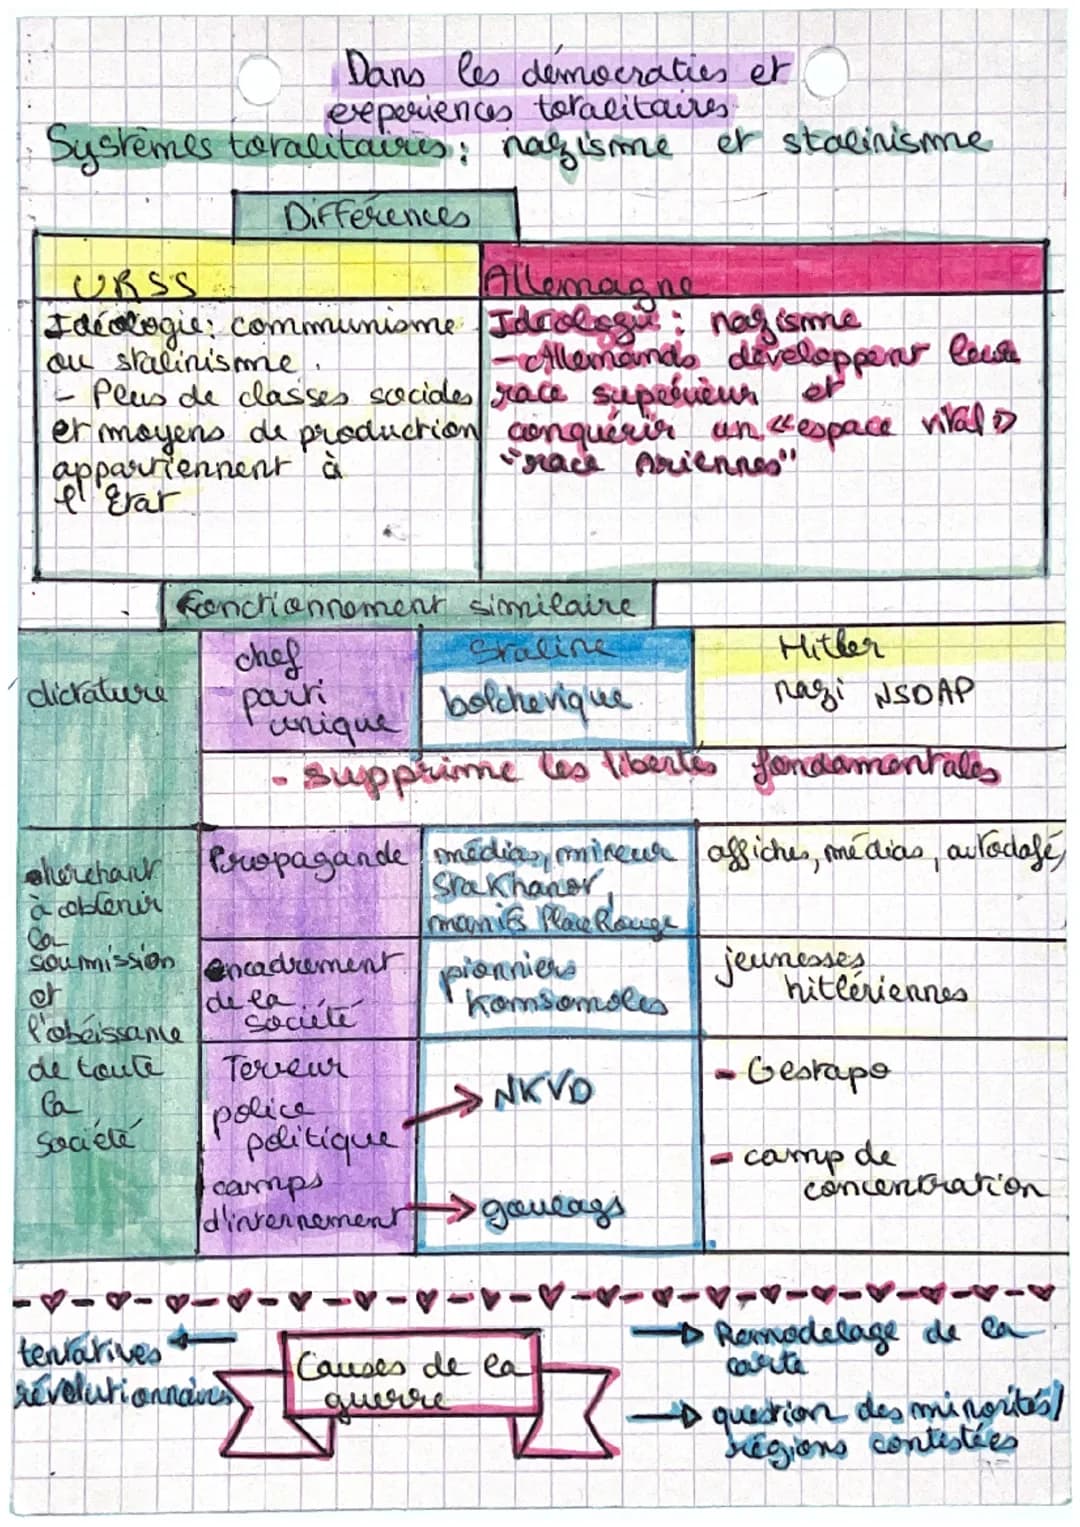 Dans les démocraties et
expériences totalitaires
Systèmes totalitaires: nazisme et stalinisme
Différences
URSS
Idéologie: communisme
au stalinisme.
- Plus de classes sociales
et moyens de production
appartiennent à
l'Etat
Allemagne
Idéologie: nazisme
- Allemands développent leur
race supérieur et
conquérir un «espace vital»
"race Ariennes"
Fonctionnement similaire
dictature
chef
parti
unique
Staline
bolchevique
Hitler
nazi NSDAP
- supprime les libertés fondamentales
cherchant
à obtenir
la
soumission
et
l'obéissance
de toute
la
société
Propagande
médias, mineur
Stakhanov,
manifs Place Rouge
affiches, médias, autodafé,
encadrement
de la
société
pionniers
Komsomoles
jeunesses
hitlériennes
Terreur
police
politique
camps
d'internement
NKVD
goulags
- Gestapo
- camp de
concentration
tentatives
révolutionnaires
Causes de la
guerre
Remodelage de la
carte
question des minorités/
régions contestées